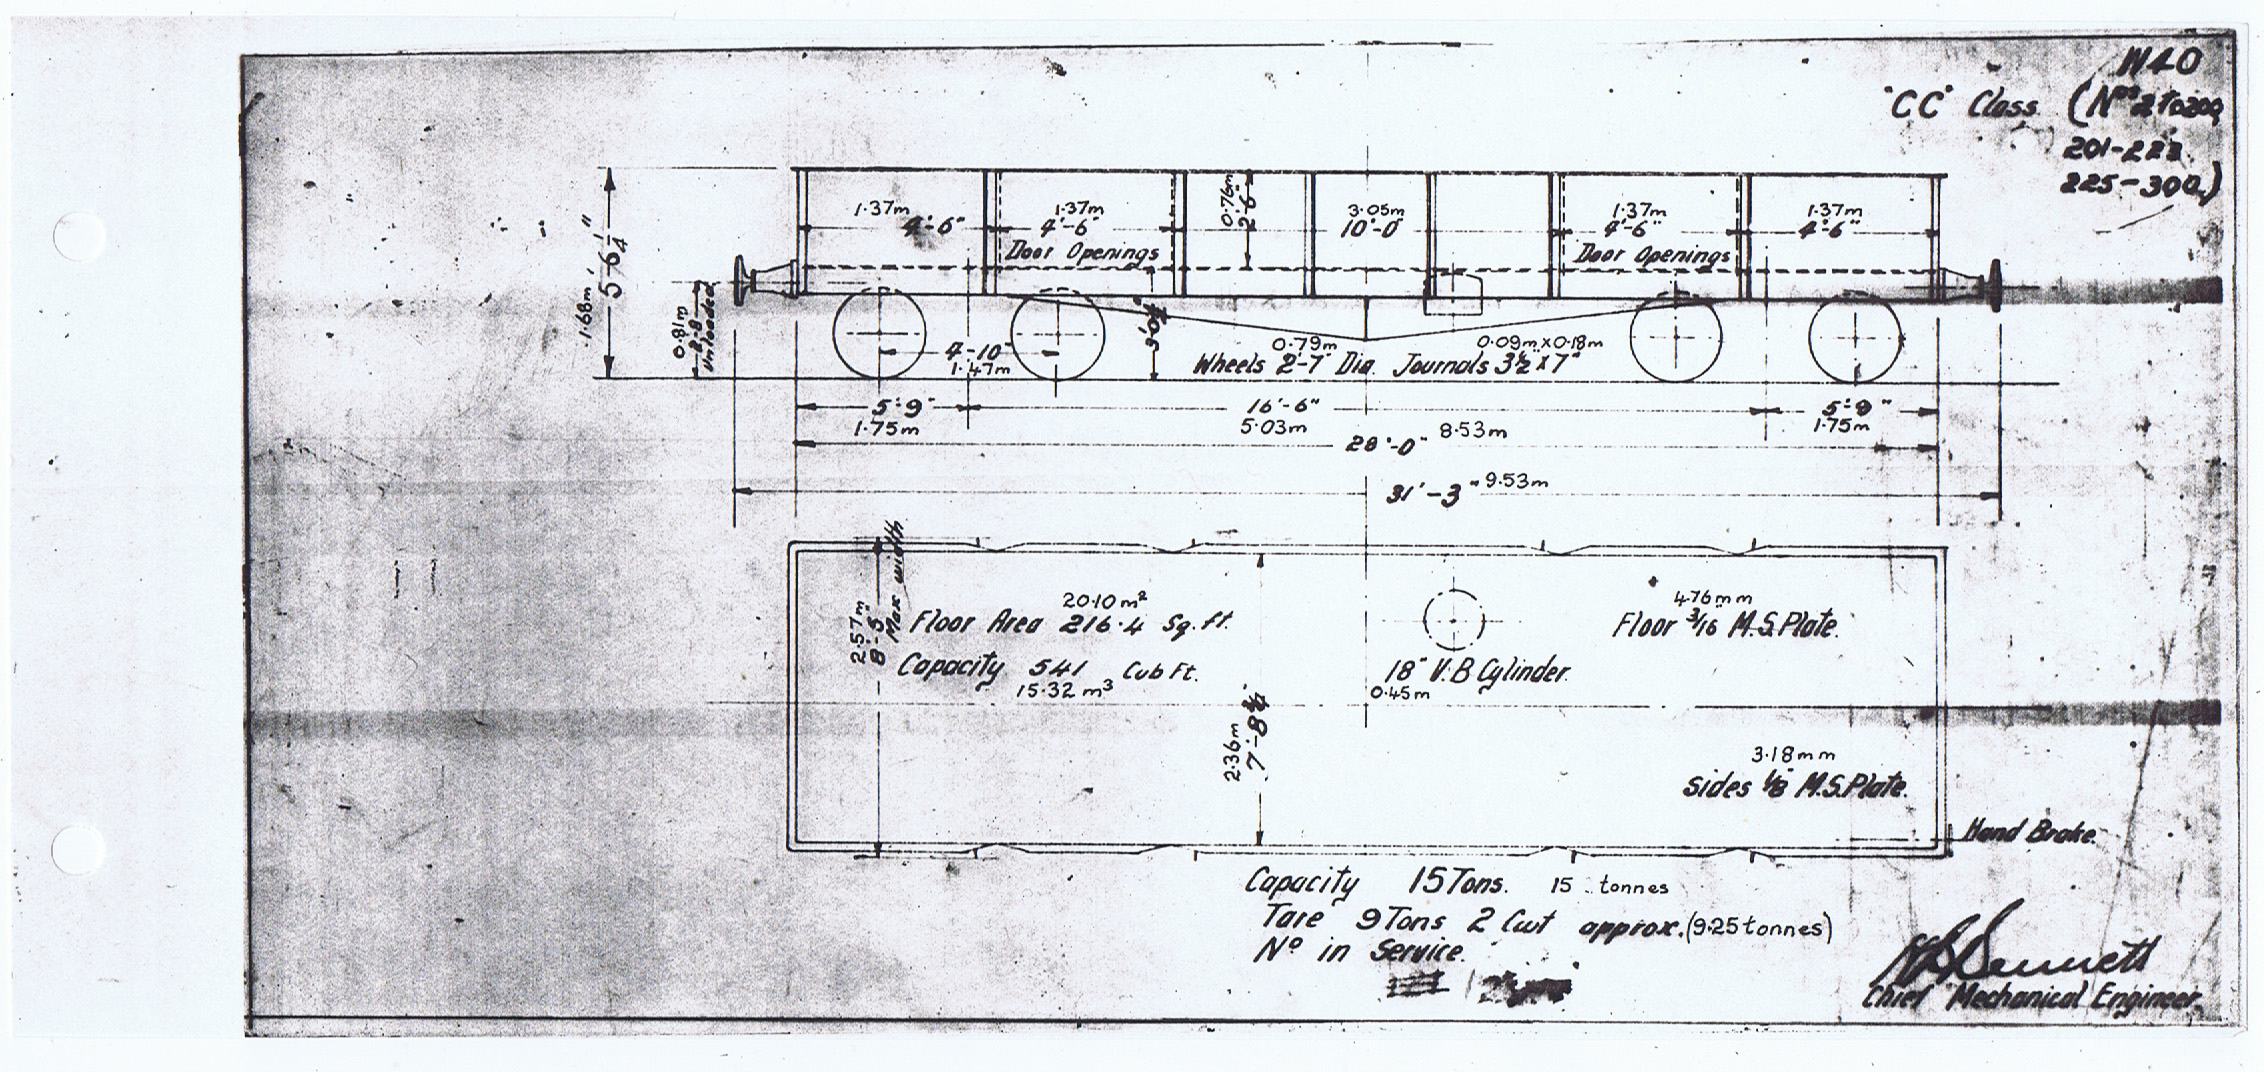 W40
"CC" Class (Nos 2 to 200,
201-223
225-300.)
1.37m
4'-6"
1.37m
4'-6"
Door Openings
0.76m
2'-6"
3.05m
10'-0"
1.37m
4'-6"
Door Openings
1.37m
4'-6"
1.68m
5'6¼"
0.81m
2'-8
Unloaded
4'-10"
1.47m
0.79m
0.09m x 0.18m
Wheels 2'-7" Dia. Journals 3½" x 7"
5'-9"
1.75m
16'-6"
5.03m
5'-9"
1.75m
28'-0" 8.53m
31'-3" 9.53m
2.57m
8'-5"
Max width
20.10 m²
Floor Area 216.4 Sq. ft.
Capacity 541 Cub Ft.
15.32 m³
2.36m
7'-8¾"
18" V.B Cylinder.
0.45m
4.76mm
Floor 3/16" M.S.Plate.
3.18mm
Sides 1/8" M.S.Plate.
Hand Brake.
Capacity 15 Tons. 15 tonnes
Tare 9 Tons 2 Cwt approx. (9.25 tonnes)
No in Service.
Chief Mechanical Engineer.